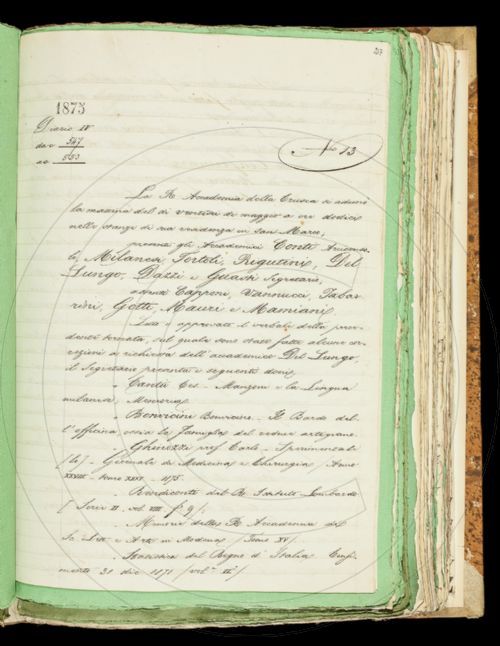 217
1875
Diario IV
da c 547
a c 553
N.o 13
La R. Accademia della Crusca si adunò
la mattina del dì ventisei di maggio a ore dodici
nelle stanze di sua residenza in San Marco,
presenti gli Accademici Conti Arciconso-
lo, Milanesi, Tortoli, Rigutini, Del
Lungo, Dazzi e Guasti Segretario,
assenti Capponi, Vannucci, Tabar-
rini, Gotti, Mauri e Mamiani.
Letto e approvato il verbale della prece-
dente tornata, sul quale sono state fatte alcune cor-
rezioni a richiesta dell'accademico Del Lungo,
il Segretario presenta i seguenti doni,
Cantù Ces. - Manzoni e la Lingua
milanese, Memoria.
Bonvicini - Il Bardo del-
l'officina ossia la famiglia del artigiano.
Ghinozzi prof. Carlo - Sperimentale
(Lo) - Giornale di Medicina e Chirurgia, Anno
XXVII - tomo XXXV - 1875.
Rendiconti del R. Istituto Lombardo
( Serie II. vol. VIII f. 9 ).
Memorie della R. Accademia di
Sc. Lett. e Arti in Modena (Tomo XV).
Statistica del Regno d'Italia. Censi-
mento 31 dic. 1871 (vol. II)